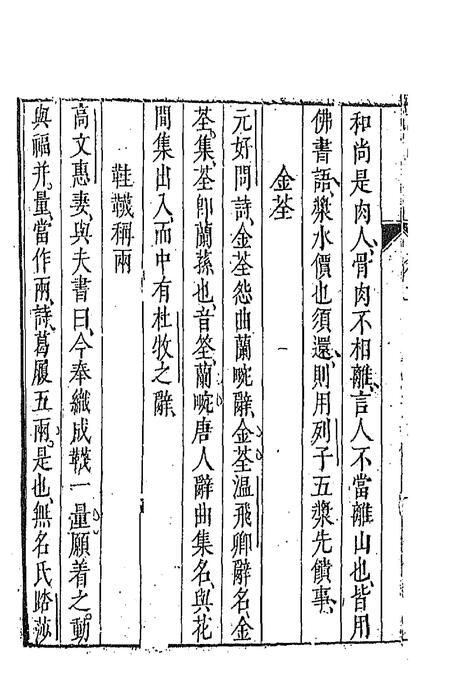 和尚是肉人、骨肉不相離、言人不當離山也、皆用
佛書語、漿水價也須還、則用列子五漿先饋事、
金荃
元好問詩、金荃怨曲蘭畹辭、金荃温飛卿辭名、金
荃集、荃卽蘭蓀也、音筌、蘭畹唐人辭曲集名、與花
間集出入、而中有杜牧之辭、
鞋韈稱兩
高文惠妻、與夫書曰、今奉織成韈一量、願着之、動
與福并、量、當作兩、詩、葛屨五兩、是也、無名氏踏莎